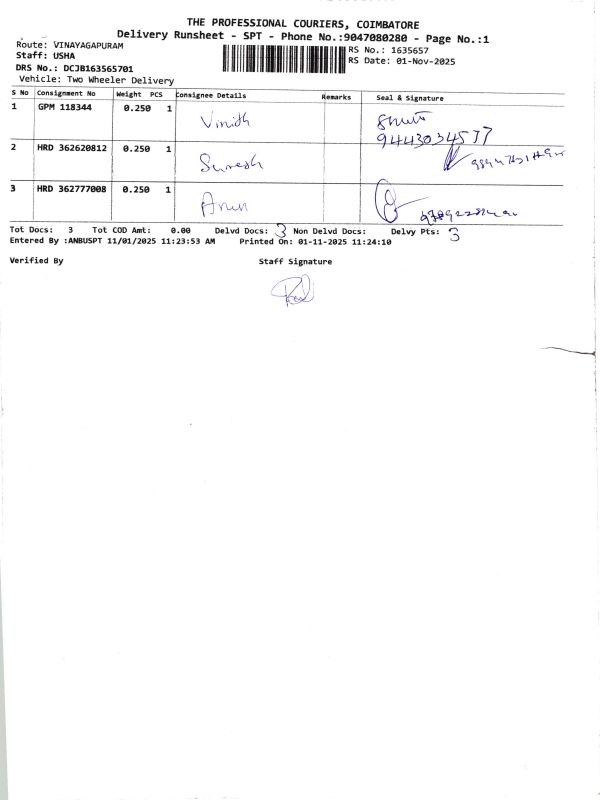 THE PROFESSIONAL COURIERS, COIMBATORE
Delivery Runsheet - SPT - Phone No.:9047080280 - Page No.:1
Route: VINAYAGAPURAM
Staff: USHA
DRS No.: DCJB163565701
Vehicle: Two Wheeler Delivery
RS No.: 1635657
RS Date: 01-Nov-2025
S No Consignment No Weight PCS Consignee Details Remarks Seal & Signature
1 GPM 118344 0.250 1 Vinith
9443034577
2 HRD 362620812 0.250 1 Suresh
3 HRD 362777008 0.250 1 Arun
Tot Docs: 3 Tot COD Amt: 0.00 Delvd Docs: 3 Non Delvd Docs: Delvy Pts: 3
Entered By :ANBUSPT 11/01/2025 11:23:53 AM Printed On: 01-11-2025 11:24:10
Verified By Staff Signature